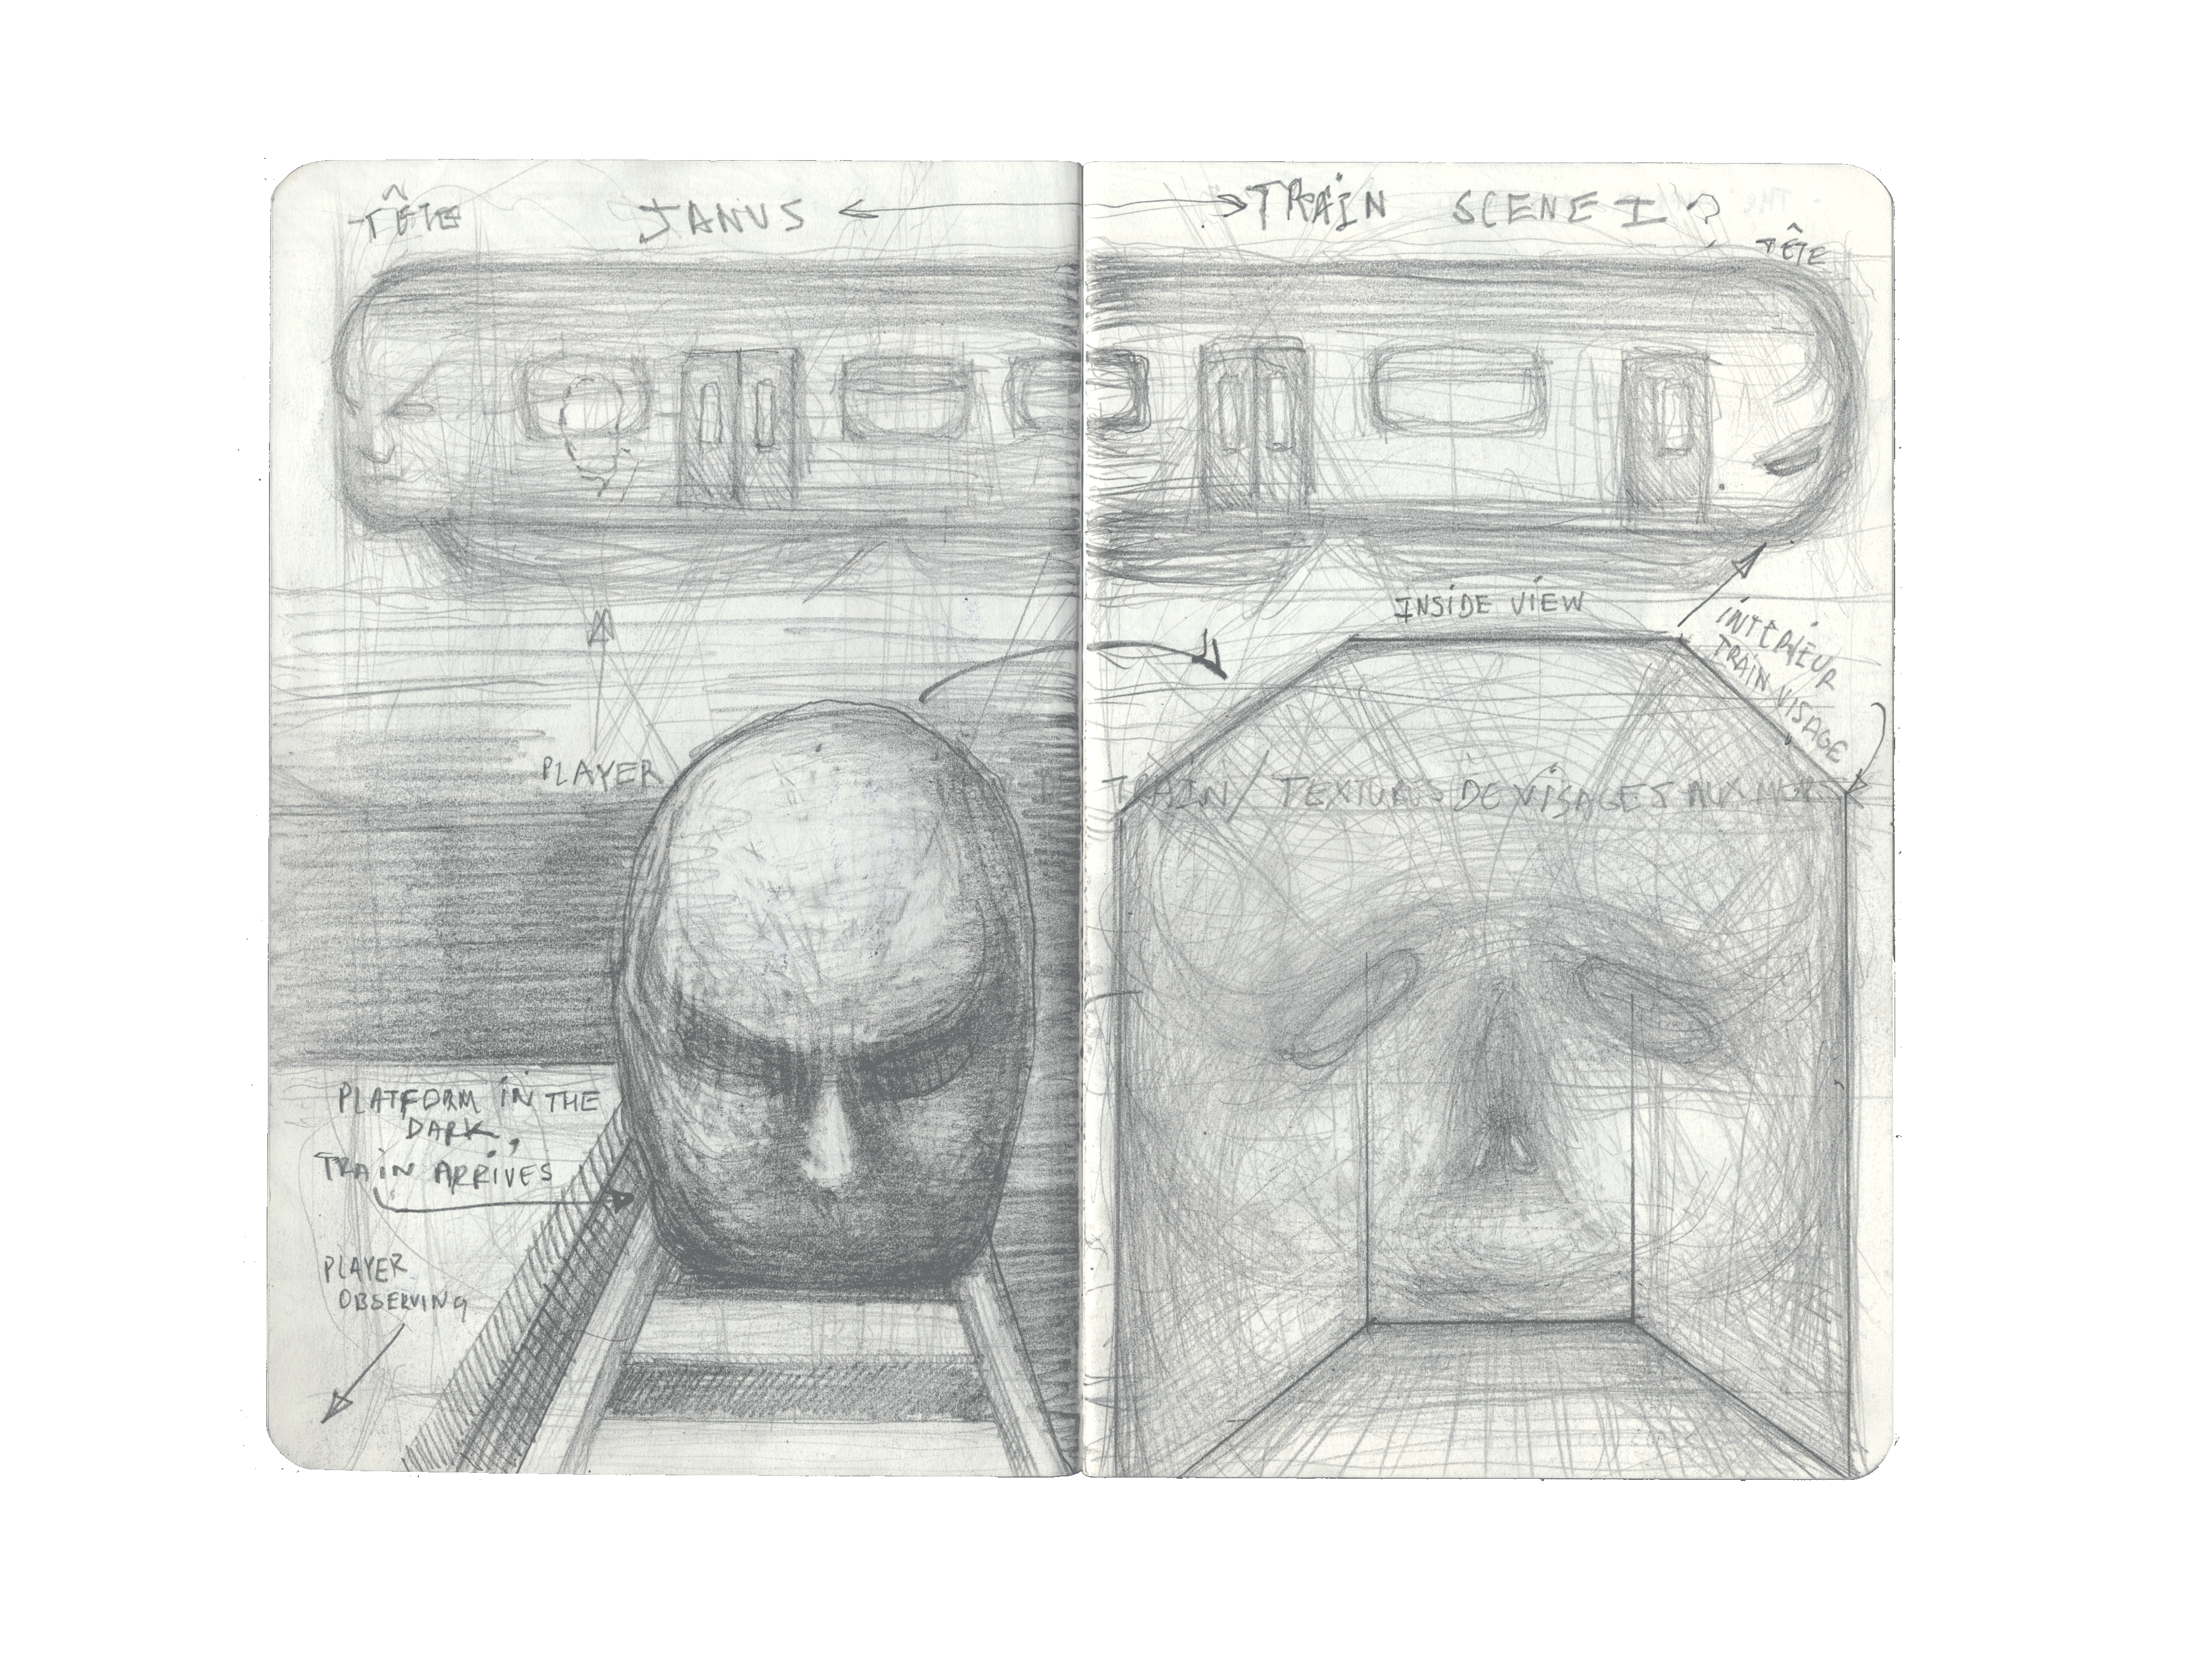 TÊTE
JANUS
TRAIN SCENE I ?
TÊTE
INSIDE VIEW
INTERIEUR
TRAIN VISAGE
PLAYER
TRAIN / TEXTURES DE VISAGES AUX MURS
PLATFORM IN THE
DARK,
TRAIN ARRIVES
PLAYER
OBSERVING